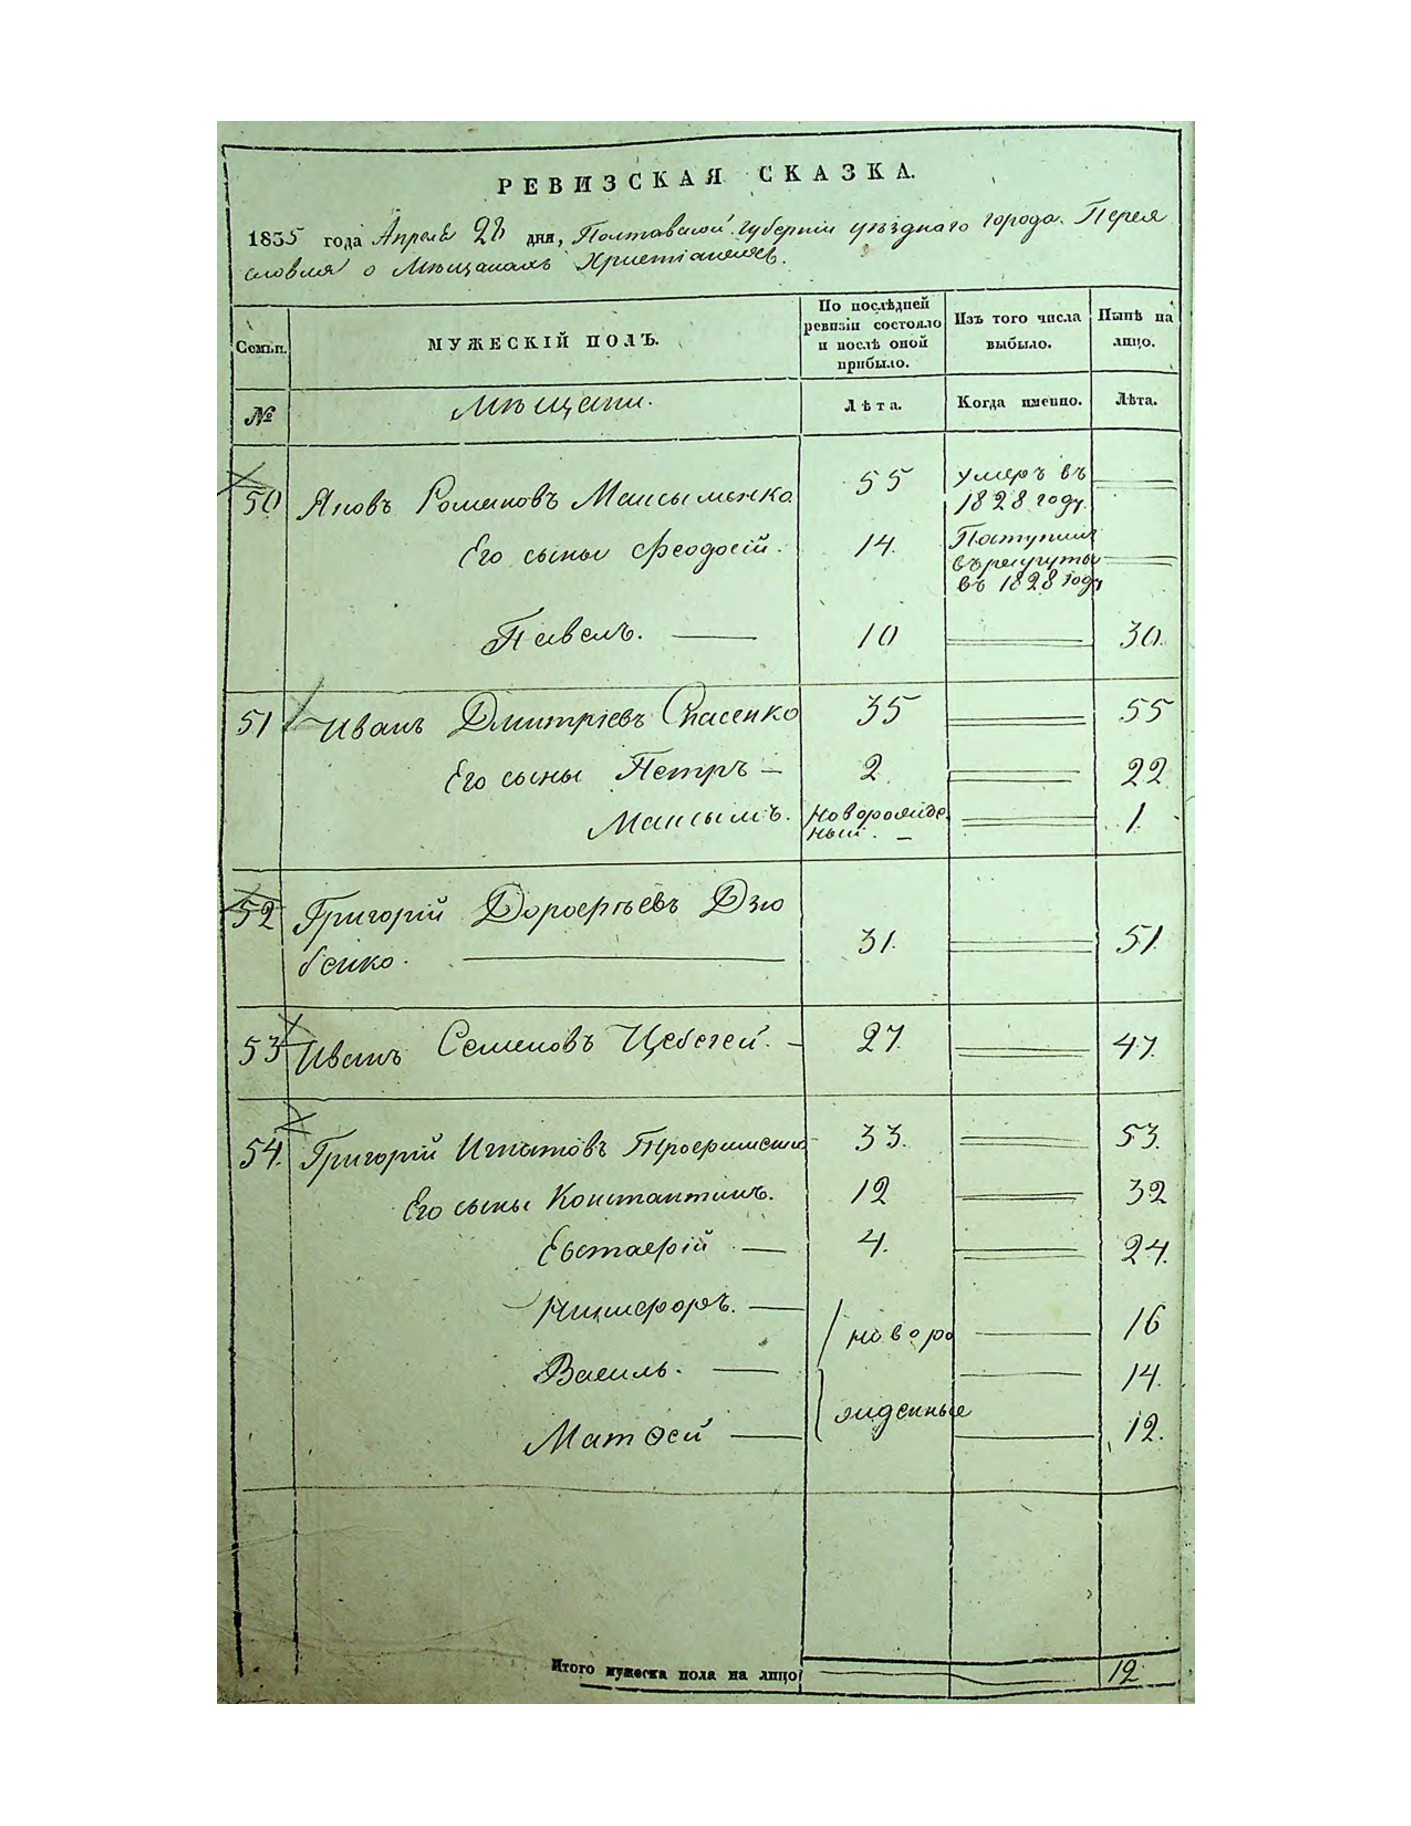 РЕВИЗСКАЯ СКАЗКА.
1835 года Апреля 28 дня, Полтавской губернии уѣзднаго города Перея
славля о Мѣщанахъ Христіанахъ.
Семьи.
МУЖЕСКІЙ ПОЛЪ.
По послѣдней
ревизіи состояло
и послѣ оной
прибыло.
Изъ того числа
выбыло.
Нынѣ на
лицо.
№
Мѣщани.
Лѣта.
Когда именно.
Лѣта.
50 Яковъ Романовъ Максыменко 55 умеръ въ
1828 году.
Его сыны Феодосій. 14. Поступилъ
въ рекруты
въ 1828 году
Павелъ. 10 30.
51 Иванъ Дмитріевъ Спасенко 35 55
Его сыны Петръ 2 22
Максымъ. Новорожде 1.
ный.
52 Григорій Дорофѣевъ Дзю
бенко. 31. 51.
53 Иванъ Семеновъ Цебегей. 27. 47.
54. Григорій Игнатовъ 33. 53.
Его сыны Константинъ. 12 32
Евстафій 4. 24.
Никифоръ. 16
новоро
Василь. 14.
жденные
Матѳей 12.
Итого мужеска пола на лицо 12